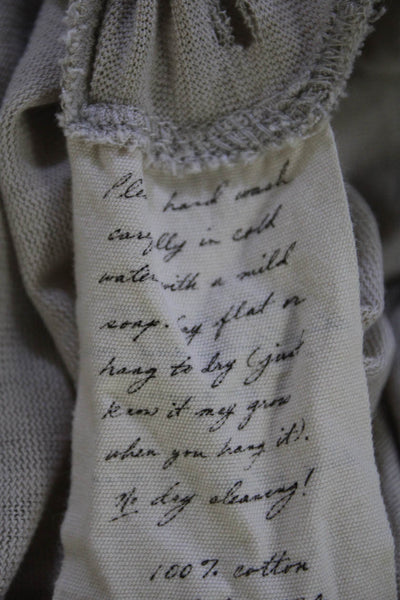 Ple hand wash
carefully in cold
water with a mild
soap. Lay flat or
hang to dry (just
know it may grow
when you hang it).
No dry cleaning!
100% cotton